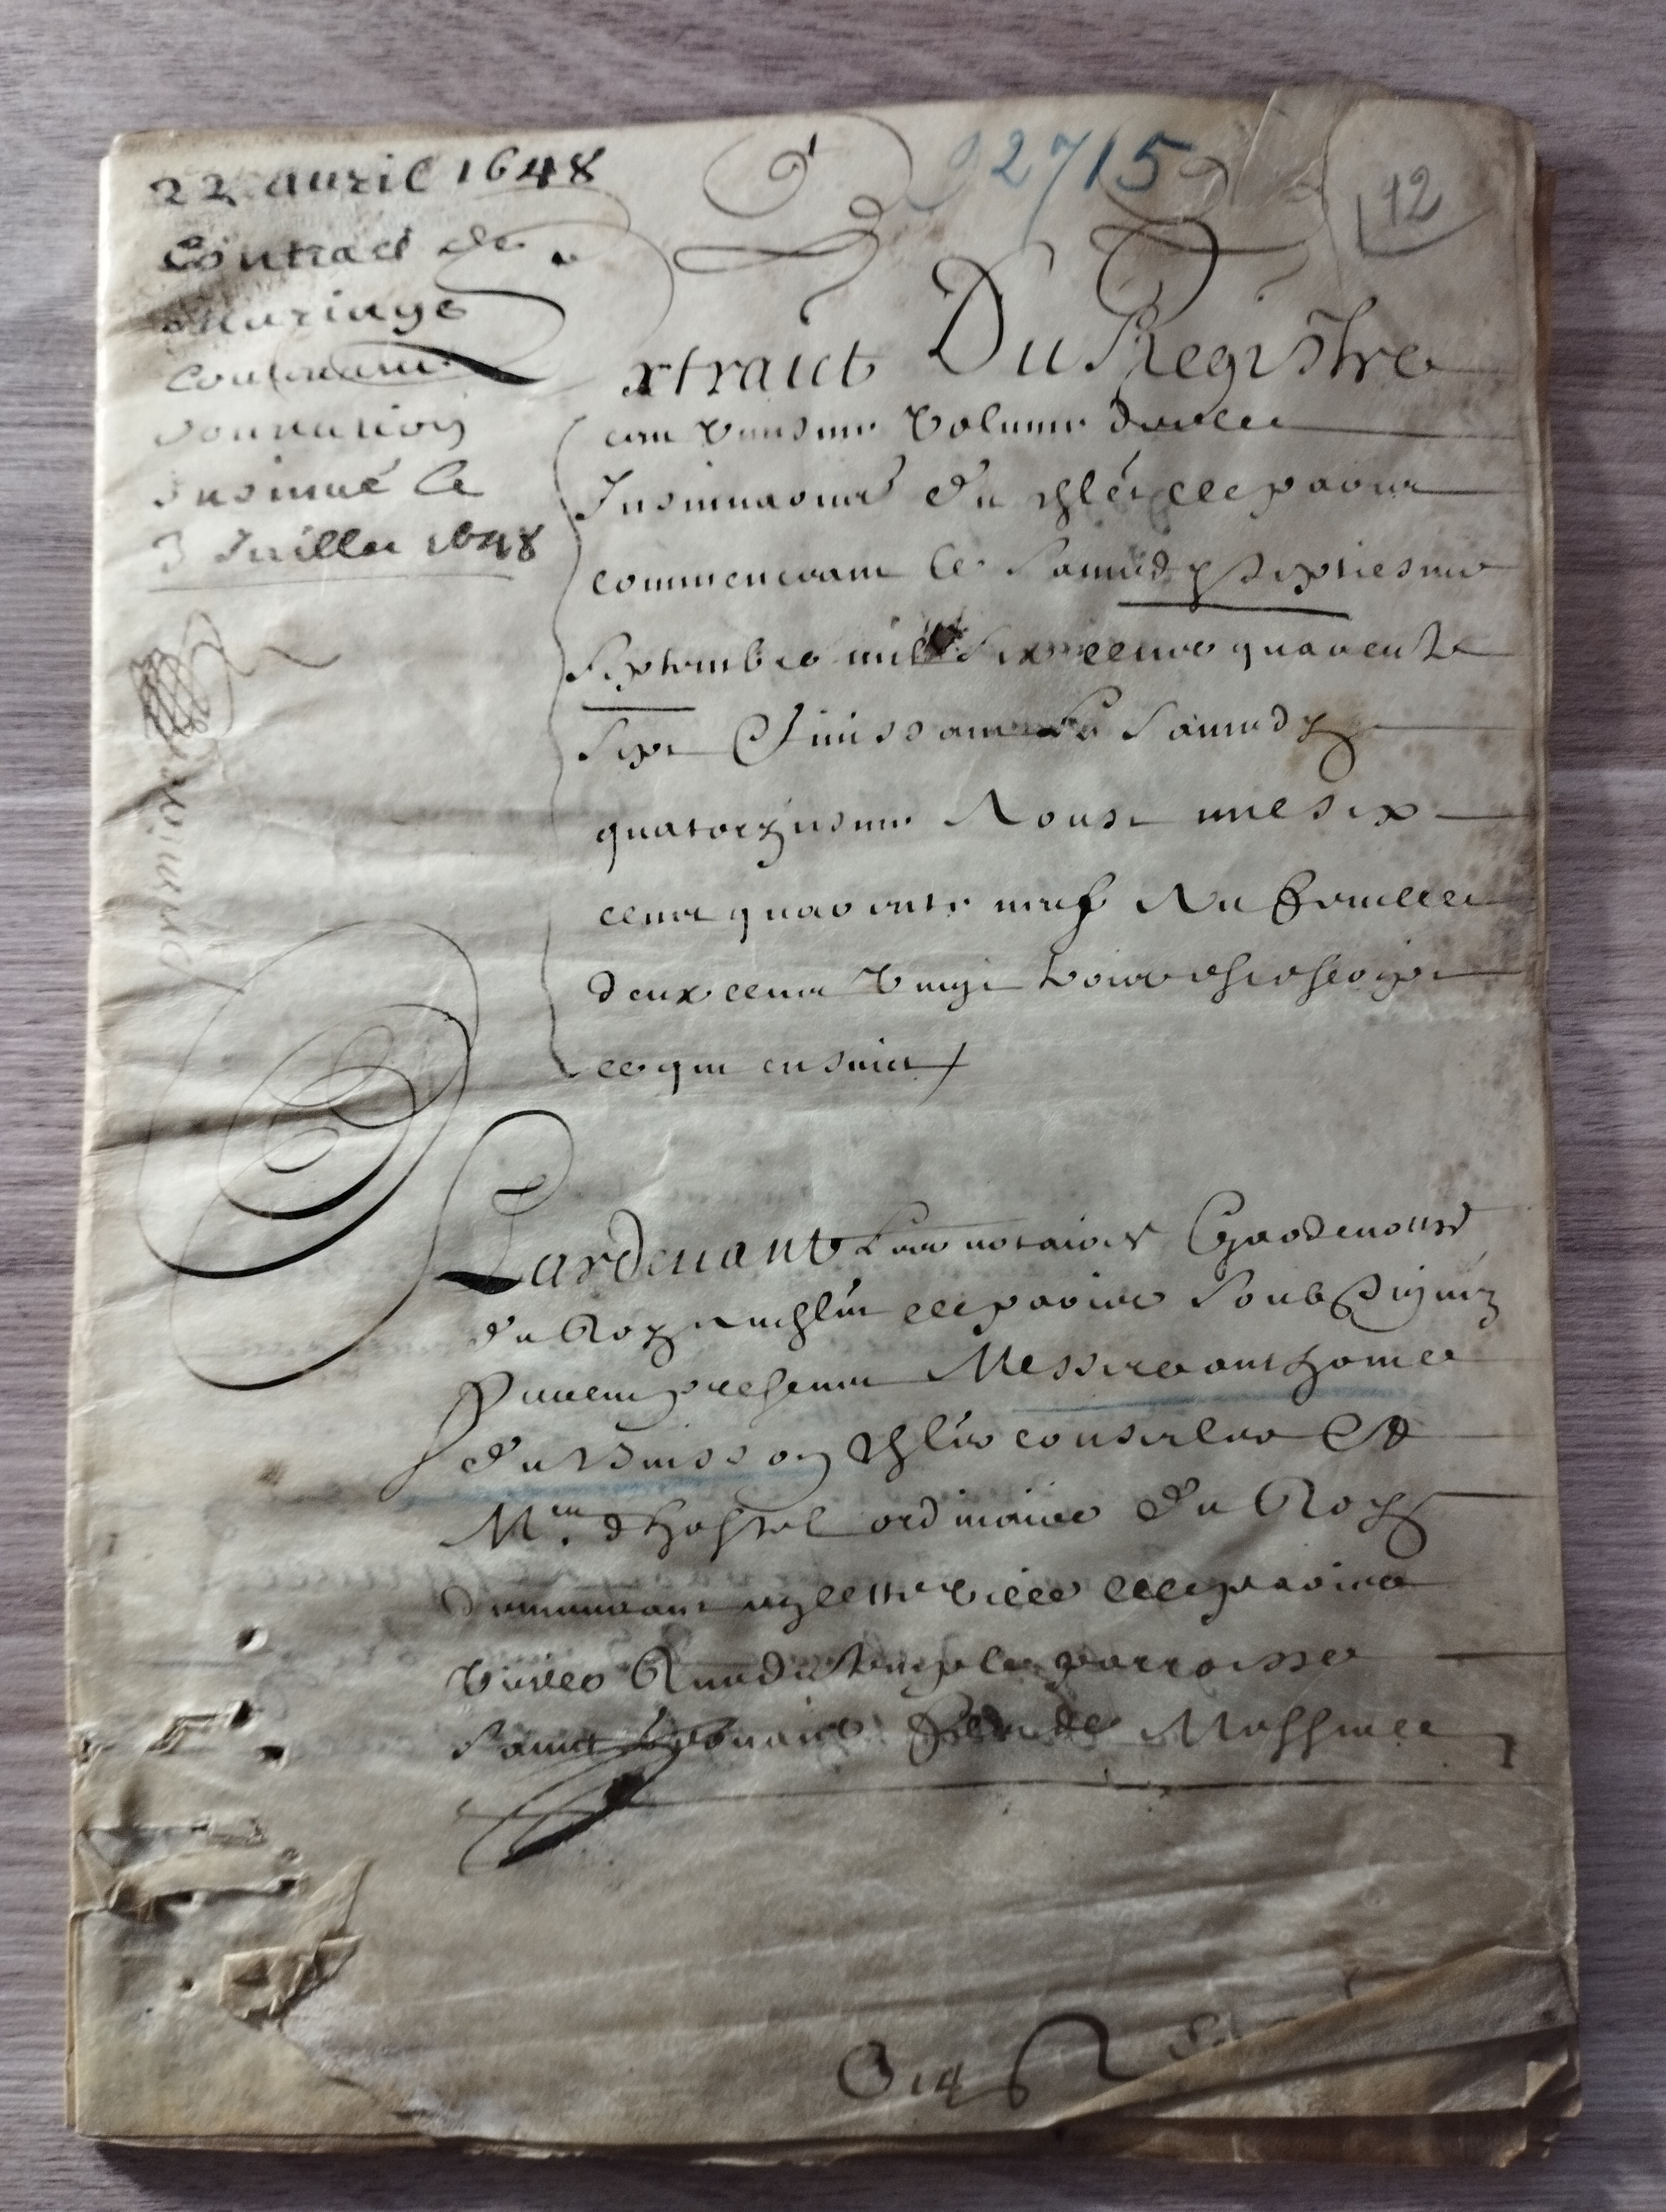 22 auril 1648
Contract de
Mariage
contenant
donnation
Insinué le
3 Juillet 1648
2715
12
Extraict Du Registre
Volume des
Insinuations du chlet de paris
commenceant le Samedy Septiesme
Septembre mil six cens quarente
Six finissant le Samedy
quatorziesme Aoust mil six
cens quarente neuf Au feuillet
deux cens vingt
ce qui ensuict
Pardeuant les notaires Gardenottes
du Roy au chlet de paris soubsignez
furent presens Messire anthoine
du Buisson cheler conseiller et
Me. dhostel ordinaire du Roy
demeurant en cette ville de paris
vieille Rue du temple parroisse
Saint Mossire